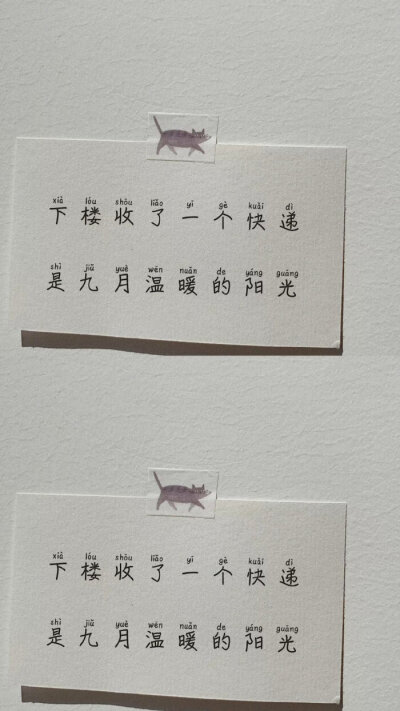 xià lóu shōu liǎo yī gè kuài dì
下楼收了一个快递
shì jiǔ yuè wēn nuǎn de yáng guāng
是九月温暖的阳光
xià lóu shōu liǎo yī gè kuài dì
下楼收了一个快递
shì jiǔ yuè wēn nuǎn de yáng guāng
是九月温暖的阳光